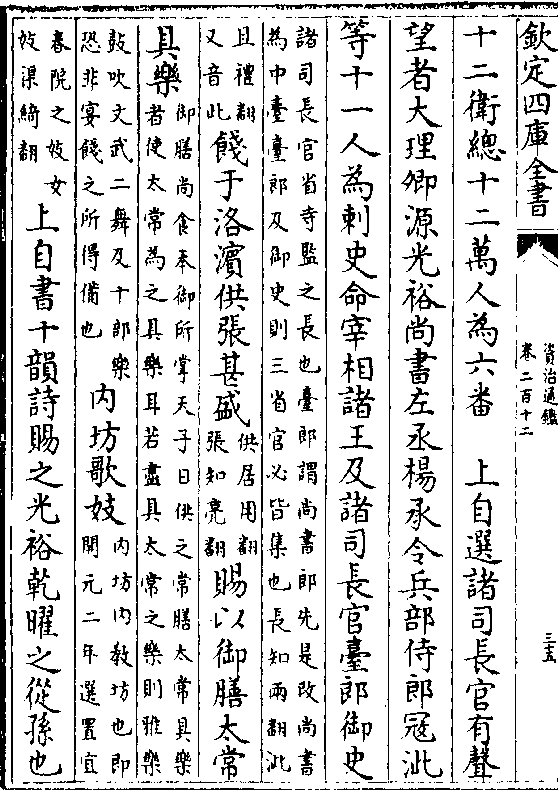 欽定四庫全書
資治通鑑
卷二百十二
三十五
十二衛總十二萬人為六番　上自選諸司長官有聲
望者大理卿源光裕尚書左丞楊承令兵部侍郎冦泚
等十一人為刺史命宰相諸王及諸司長官臺郎御史
諸司長官省寺監之長也臺郎謂尚書郎先是改尚書
為中臺臺郎及御史則三省官必皆集也長知兩翻泚
且禮翻
又音此
餞于洛濵供張甚盛
供居用翻
張知亮翻
賜以御膳太常
具樂
御膳尚食奉御所掌天子日供之常膳太常具樂
者使太常為之具樂耳若盡具太常之樂則雅樂
鼓吹文武二舞及十郎樂
恐非宴餞之所得備也
內坊歌妓
內坊內教坊也即
開元二年選置宜
春院之妓女
妓渠綺翻
上自書十韻詩賜之光裕乾曜之從孫也